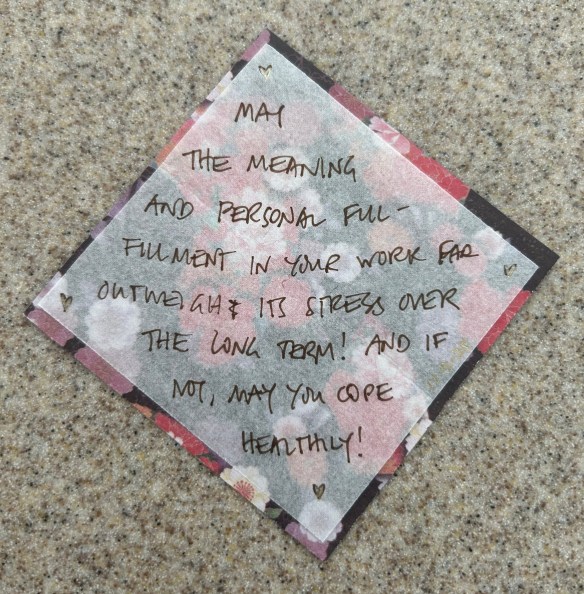 MAY
THE MEANING
AND PERSONAL FULL-
FILLMENT IN YOUR WORK FAR
OUTWEIGH ITS STRESS OVER
THE LONG TERM! AND IF
NOT, MAY YOU COPE
HEALTHILY!